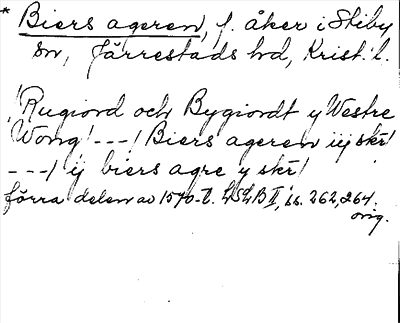 * Biers ageren, f. åker i Stiby
sn, Järrestads hd, Krist. l.
! Rugiord och Bygiordt y Westre
Wong! ---/ Biers ageren iij skr!
---/ ij biers agre y skr!
förra delen av 1570-t. LSLB II, s. 262, 264.
orig.